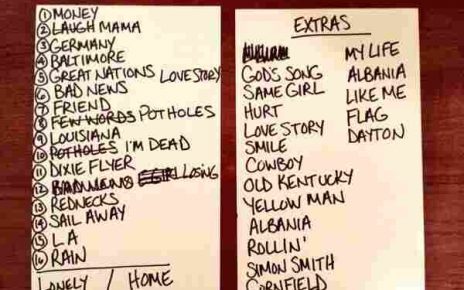 ① MONEY
② LAUGH MAMA
③ GERMANY
④ BALTIMORE
⑤ GREAT NATIONS LOVE STORY
⑥ BAD NEWS
⑦ FRIEND
⑧ FEW WORDS POTHOLES
⑨ LOUISIANA
⑩ POTHOLES I'M DEAD
⑪ DIXIE FLYER
⑫ LOSING
⑬ REDNECKS
⑭ SAIL AWAY
⑮ L.A
⑯ RAIN
LONELY / HOME
EXTRAS
GOD'S SONG
SAME GIRL
HURT
LOVE STORY
SMILE
COWBOY
OLD KENTUCKY
YELLOW MAN
ALBANIA
ROLLIN'
SIMON SMITH
CORNFIELD
MY LIFE
ALBANIA
LIKE ME
FLAG
DAYTON